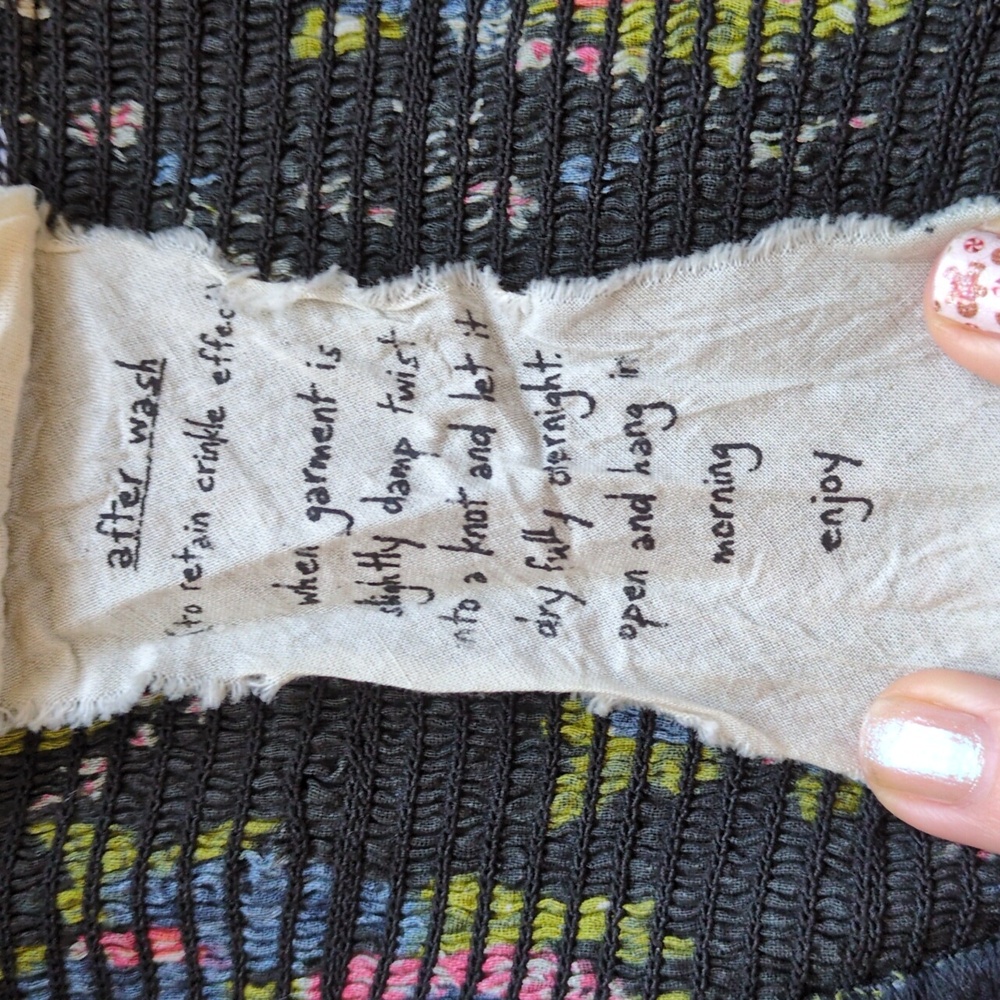 after wash
(to retain crinkle effect)
when garment is
slightly damp twist
nto a knot and let it
dry fully overnight.
open and hang in
morning
enjoy